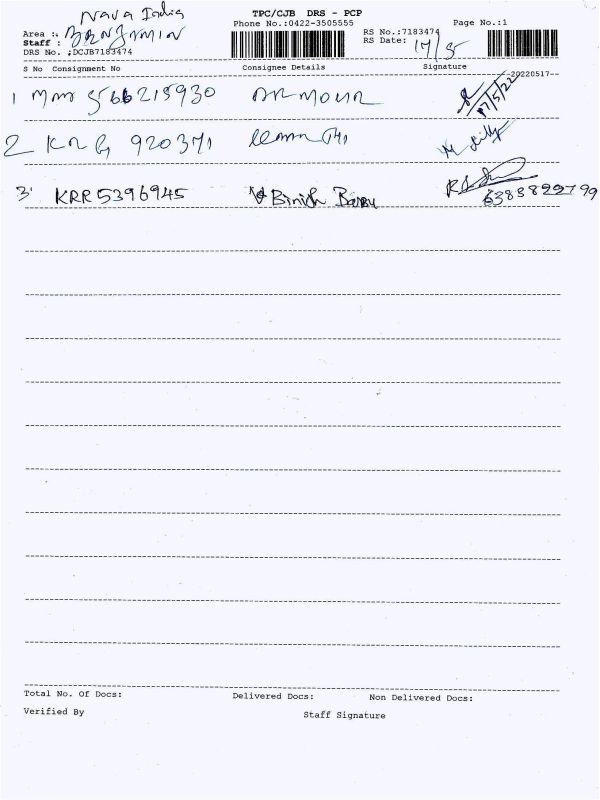 Nava India
TPC/CJB DRS - PCP
Phone No.:0422-3505555
Page No.:1
Area :
Staff : BENJAMIN
DRS No. :DCJB7183474
RS No.:7183474
RS Date: 17/5
S No Consignment No Consignee Details Signature
--20220517--
1 566215930 ARMOUR
17/5/22
2 920371
3 KRR5396945 Binish Babu
6383899799
Total No. Of Docs: Delivered Docs: Non Delivered Docs:
Verified By Staff Signature